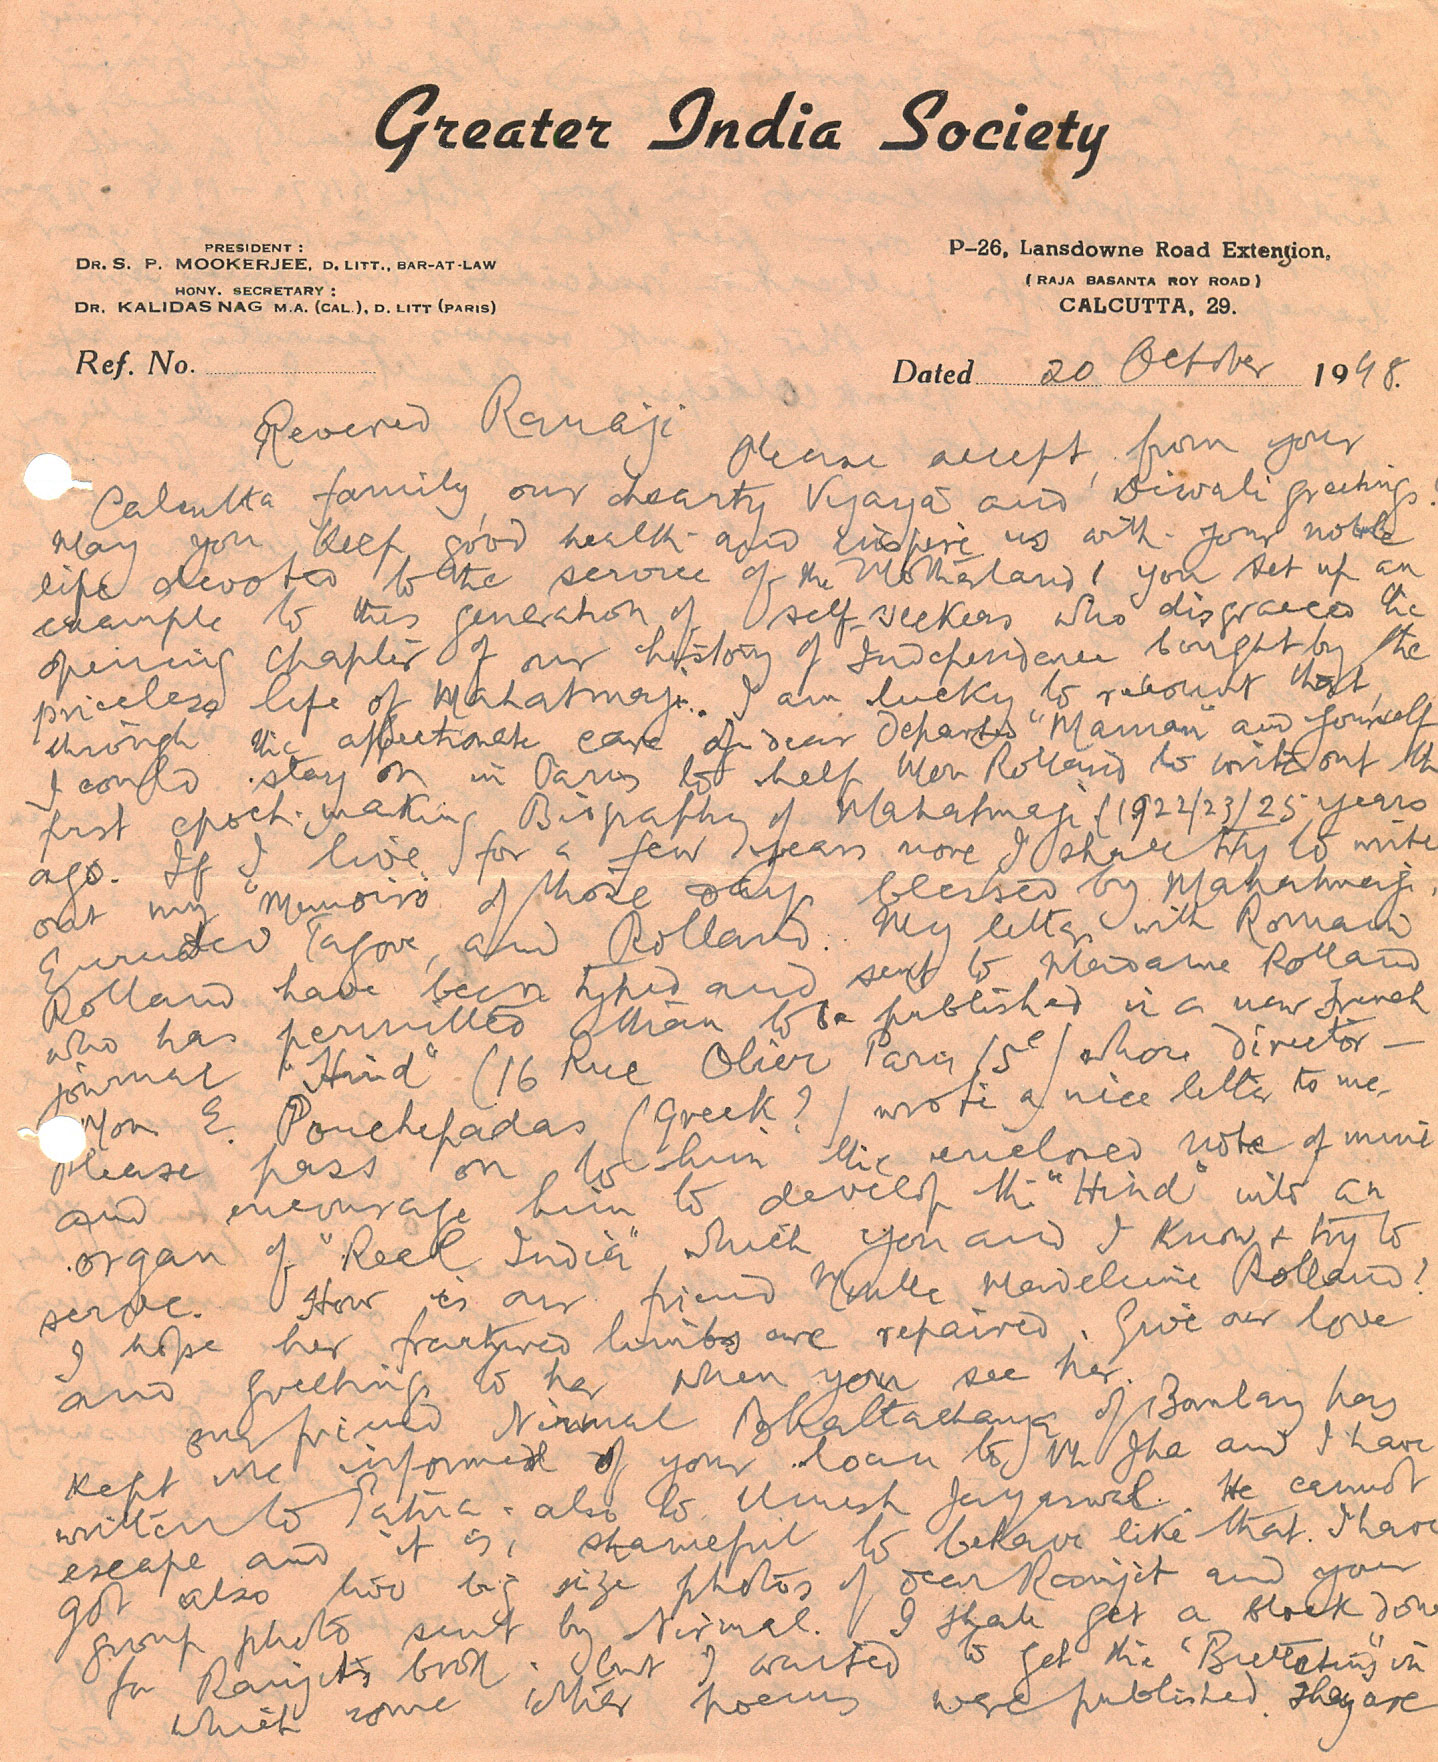 Greater India Society
PRESIDENT :
DR. S. P. MOOKERJEE, D. LITT., BAR-AT-LAW
HONY. SECRETARY :
DR. KALIDAS NAG M.A. (CAL.), D. LITT (PARIS)
P-26, Lansdowne Road Extention,
( RAJA BASANTA ROY ROAD )
CALCUTTA, 29.
Ref. No.
Dated 20 October 1948.
Revered Ranaji
Please accept from your
Calcutta family, our hearty Vijaya and Diwali greetings!
May you keep good health and inspire us with your noble
life devoted to the service of the Motherland! You set up an
example to this generation of self-seekers who disgraced the
opening chapter of our history of Independence bought by the
priceless life of Mahatmaji. I am lucky to recount that,
through the affectionate care of dear departed "Maman" and yourself
I could stay on in Paris to help Mon Rolland to write out the
first epoch-making Biography of Mahatmaji (1922/23/25 years
ago. If I live for a few years more I shall try to write
out my "Memoirs" of those days blessed by Mahatmaji,
Gurudev Tagore, and Rolland. My letters with Romain
Rolland have been typed and sent to Madame Rolland
who has permitted them to be published in a new French
journal "Hind" (16 Rue Olier Paris (5e) whose director —
Mon E. Pouchepadas (Greek?) wrote a nice letter to me.
Please pass on to him the enclosed note of mine
and encourage him to develop the "Hind" into an
organ of "Real India" which you and I know & try to
serve. How is our friend Mmlle Madeleine Rolland?
I hope her fractured limbs are repaired. Give our love
and greetings to her when you see her.
Our friend Nirmal Bhattacharya of Bombay has
kept me informed of your loan to Jha and I have
written to Patna - also to Umesh Jayaswal. He cannot
escape and it is shameful to behave like that. I have
got also two big size photos of dear Ranjit and your
group photo sent by Nirmal. I shall get a block done
for Ranjit's book. but I wanted to get the in
which some other poems were published. They are